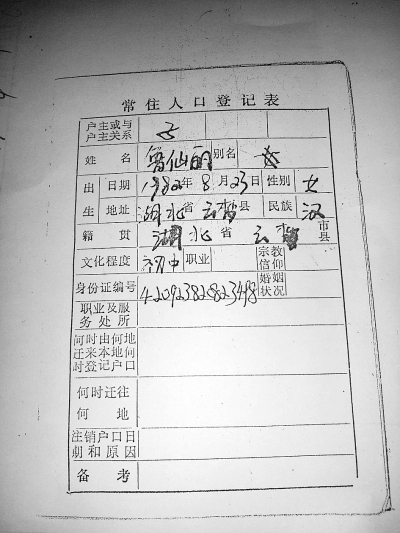 常住人口登记表
户主或与
户主关系 子
姓名 曾仙丽 别名
出生 日期 1982年8月23日 性别 女
地址 湖北省云梦县 民族 汉
籍贯 湖北省云梦市县
文化程度 初中 职业 宗教信仰
身份证编号 420923820823498 婚姻状况
职业及服
务处所
何时由何地
迁来本地何
时登记户口
何时迁往
何地
注销户口日
期和原因
备考